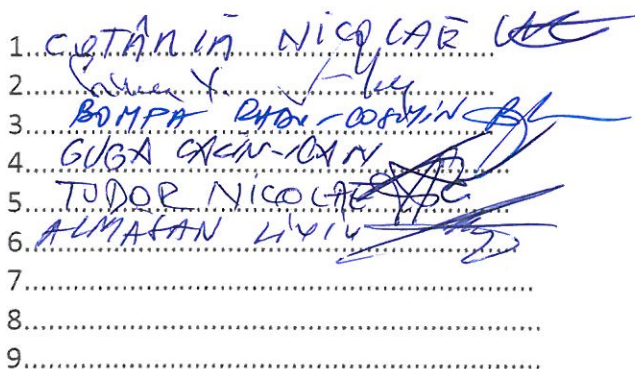 1. COTÂRLĂ NICOLAE
2.
3. BOMPA RADU-COSMIN
4. GUGA CALIN-IOAN
5. TUDOR NICOLAE
6. ALMASAN LIVIU
7.
8.
9.